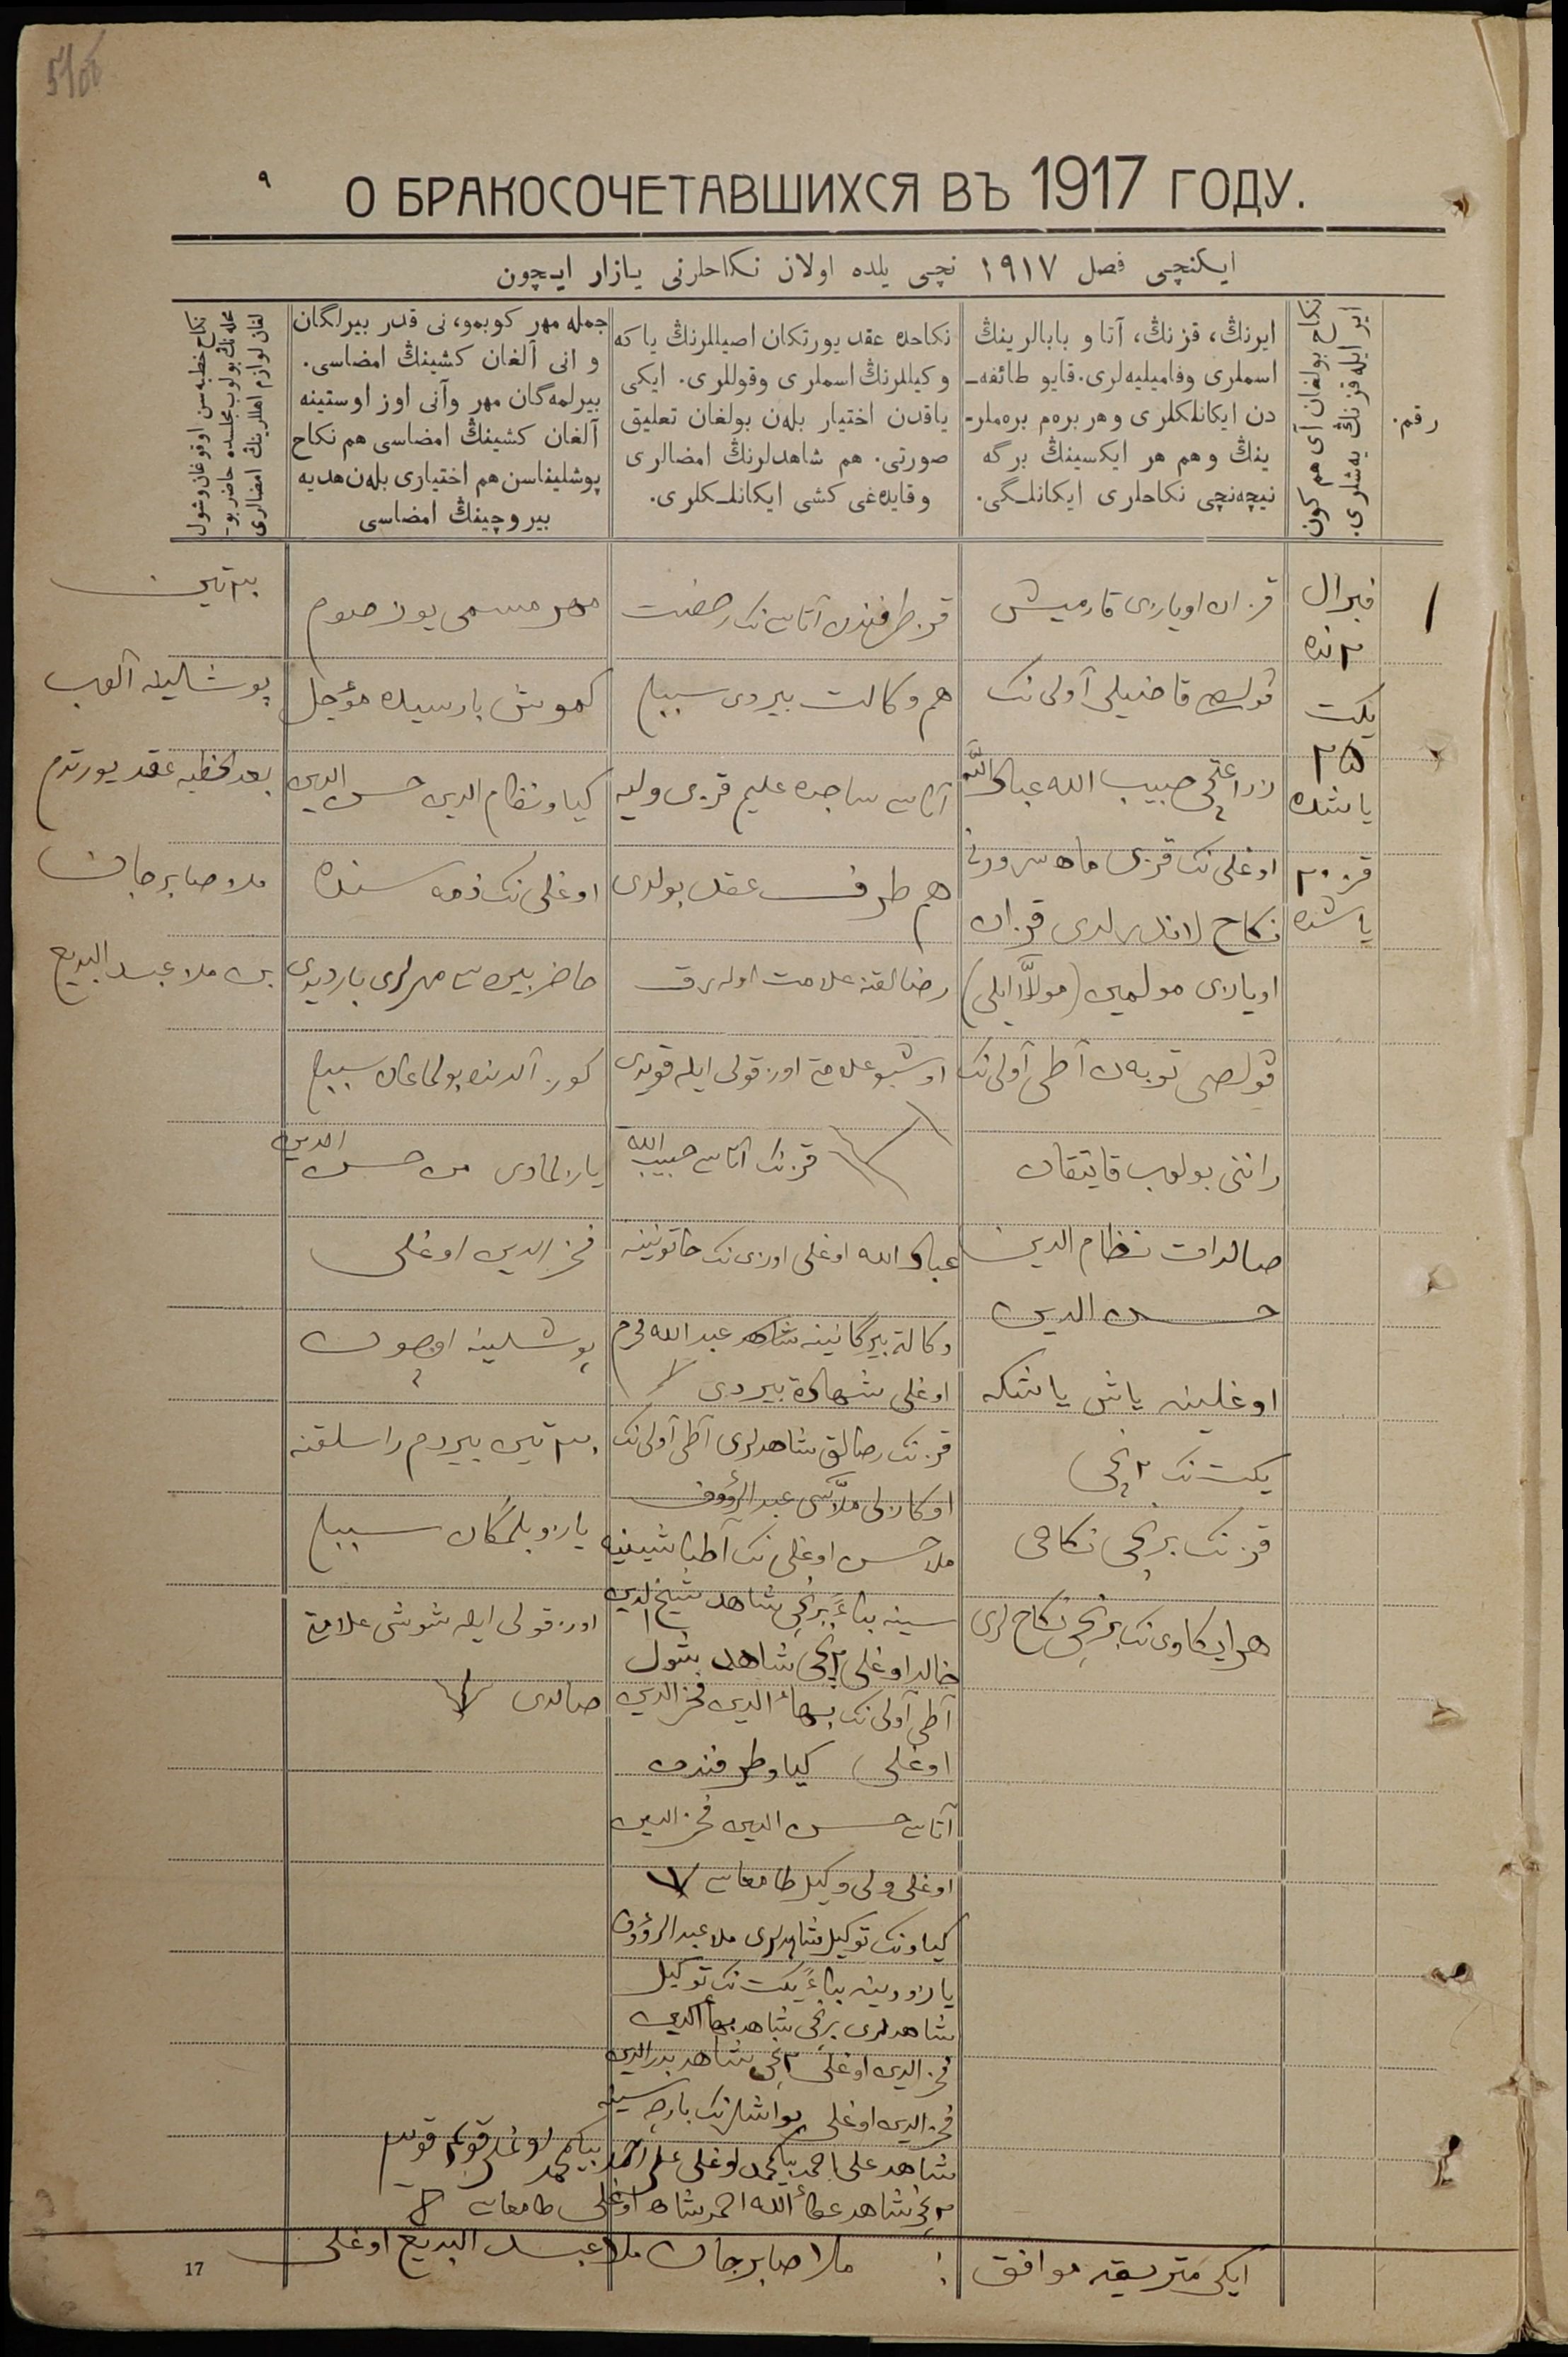 5/00
٩
О БРАКОСОЧЕТАВШИХСЯ ВЪ 1917 ГОДУ.
ایکنچی فصل ١٩١٧ نچی یلده اولان نکاحلرنی یازار ایچون
رقم.
نکاح بولغان آی هم کون
ایر ایله قزنڭ یەشلری.
ایرنڭ، قزنڭ، آتا و بابالرینڭ
اسملری وفامیلیه‌لری. قایو طائفه‌ـ
دن ایکانلکلری و هر برەم برەملرـ
ینڭ و هم هر ایکسینڭ برگه
نیچه‌نچی نکاحلری ایکانلـگی.
نکاحده عقد یورتکان اصیللرنڭ یاکه
وکیللرنڭ اسملری وقوللری. ایکی
یاقدن اختیار بلەن بولغان تعلیق
صورتی. هم شاهدلرنڭ امضالری
وقایدەغی کشی ایکانلـکلری.
جمله مهر کوبمو، نی قدر بیرلگان
و انی آلغان کشینڭ امضاسی.
بیرلمەگان مهر وآنی اوز اوستینه
آلغان کشینڭ امضاسی هم نکاح
پوشلیناسن هم اختیاری بلەن هدیه
بیروچینڭ امضاسی
نکاح خطبه‌سن اوقوغان وشول
محله‌نڭ بولوب مجلسده حاضر بوـ
لغان لوازم اهللرینڭ امضالری
١
فبرال
٢ نده
یکت
٢۵
یاشده
قز ٢٠
یاشده
قزان اویازی تارمیش
قولصه قاضیلی آولی نک
حبیب الله عبادالله
اوغلی نک قزی ماه سرورنی
نکاح لاندرلدی قزان
اویازی مولمین (مولاایلی)
قولصی توبەن آطی آولی نک
بولوب قایتقان
صالدات نظام الدین
حسن الدین
اوغلینه یاش یاشکه
یکت نک ٢نچی
قزنک برنچی نکاحی
هر ایکاوی نک برنچی نکاح لری
قز طرفندن آتاسی نک رخصت
هم وکالت بیردی سببلی
آناسی ساجده علیم قزی ولیه
هم طرف عقد بولدی
رضالقنه علامت اوله‌رق
اوشبو علامتی اوز قولی ایله قویدی
قزنک آتاسی حبیب الله
عبادالله اوغلی اوزی نک خاتونینه
وکالة بیرگانینه شاهد عبدالله
اوغلی شهادة بیردی
قزنک رضالق شاهدلری آطی آولی نک
ملاسی عبدالرؤوف
ملا حسن اوغلی نک
سینه بناءً برنچی شاهد شیخ الدین
خالد اوغلی ٢نچی شاهد بتول
آطی آولی نک بهاءالدین فخرالدین
اوغلی کیاو طرفندن
آتاسی حسن الدین فخرالدین
اوغلی ولی وکیل طامغاسی
کیاونک توکیل شاهدلری ملا عبدالرؤوف
یازووینه بناءً یکت نک توکیل
شاهدلری برنچی شاهد بهاءالدین
فخرالدین اوغلی ٢نچی شاهد بدرالدین
فخرالدین اوغلی بو اشلرنک بارچه سینه
شاهد علی احمد بیکمحمد اوغلی علی احمد بیکمحمد اوغلی قولم قویدم
٢نچی شاهد عطاءالله احمدشاه اوغلی طامغاسی
مهر مسمی یوز صوم
کموش بارسیده مؤجل
کیاو نظام الدین حسن الدین
اوغلی نک ذمه سنده
حاضر بیرەسی مهرلری بار ایدی
کوز آلدنده بولماغان سببلی
یازلمادی من حسن الدین
فخرالدین اوغلی
پوشلینه اوچون
تین بیردم راسلقنه
یازو بلمگان سببلی
اوز قولی ایله شوشی علامتی
صالدی
تین
پوشلینه آلوب
بعدالخطبه عقد یورتدم
ملا صابرجان
بن ملا عبدالبدیع
ایکی متریقه موافق : ملا صابرجان ملا عبدالبدیع اوغلی
17